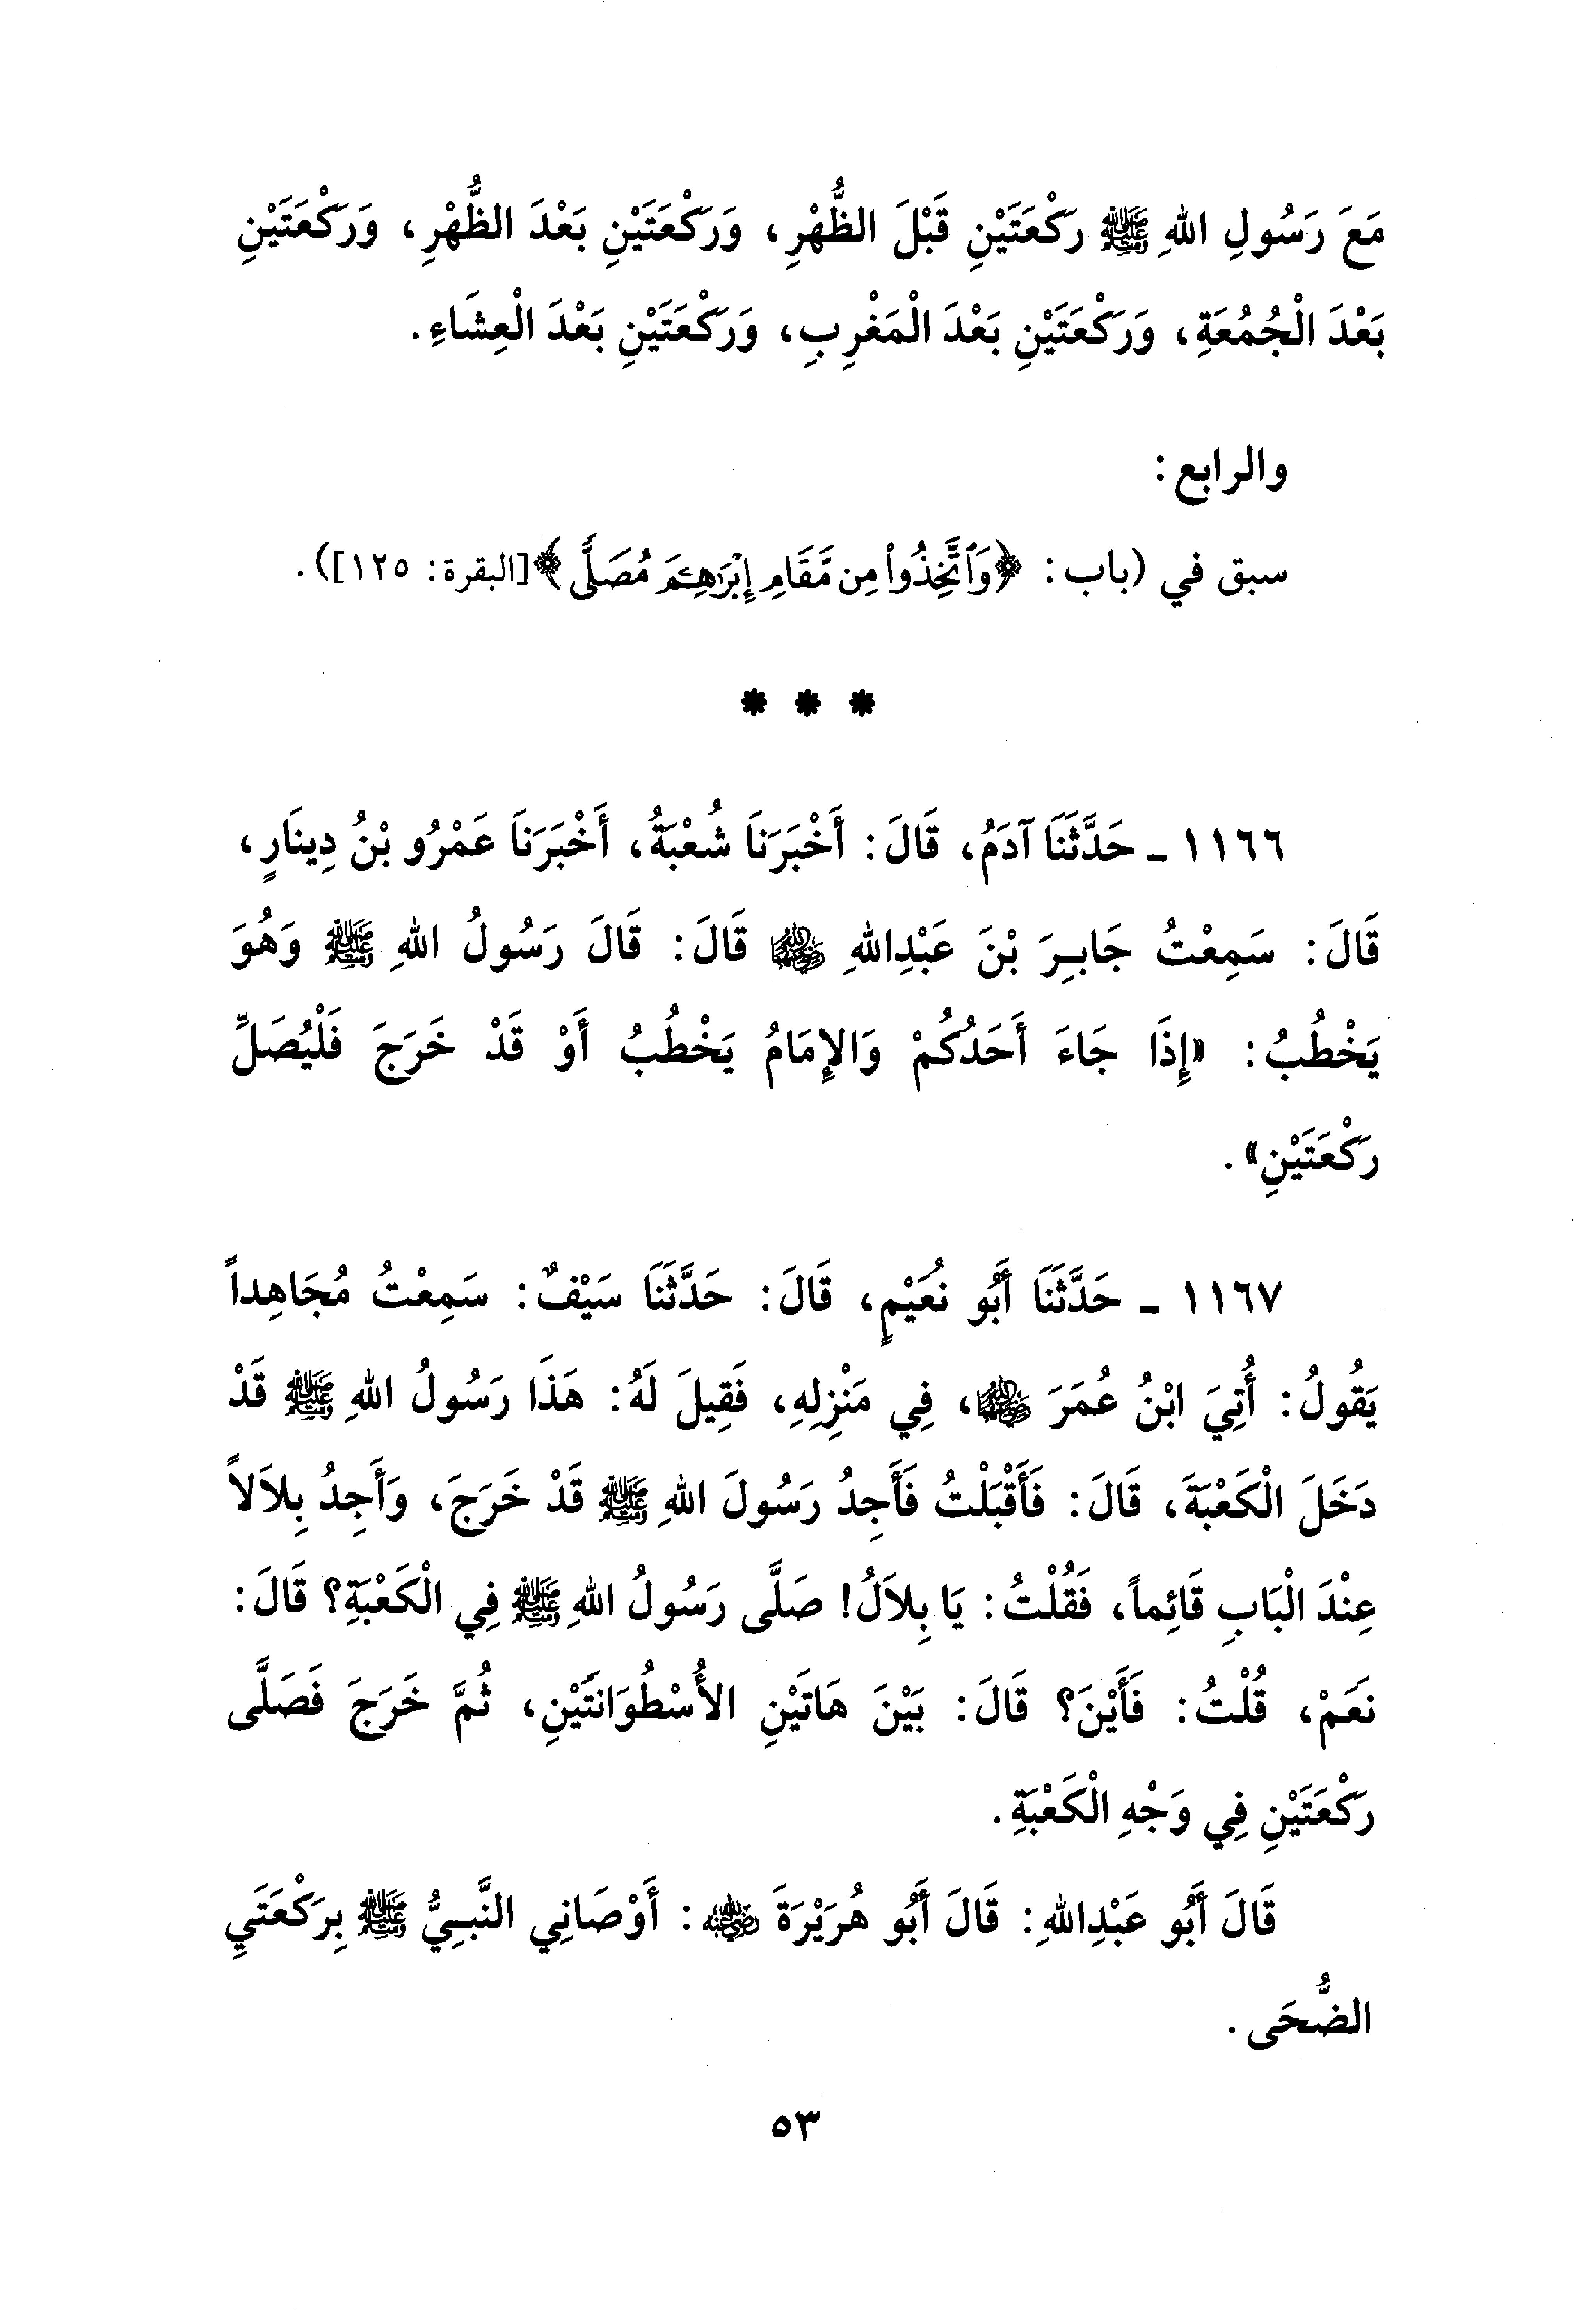 مَعَ رَسُولِ اللهِ ﷺ رَكْعَتَيْنِ قَبْلَ الظُّهْرِ، وَرَكْعَتَيْنِ بَعْدَ الظُّهْرِ، وَرَكْعَتَيْنِ
بَعْدَ الْجُمُعَةِ، وَرَكْعَتَيْنِ بَعْدَ الْمَغْرِبِ، وَرَكْعَتَيْنِ بَعْدَ الْعِشَاءِ.
والرابع:
سبق في (باب: ﴿وَٱتَّخِذُواْ مِن مَّقَامِ إِبْرَٰهِـۧمَ مُصَلًّى﴾[البقرة: ١٢٥]).
* * *
١١٦٦ ـ حَدَّثَنَا آدَمُ، قَالَ: أَخْبَرَنَا شُعْبَةُ، أَخْبَرَنَا عَمْرُو بْنُ دِينَارٍ،
قَالَ: سَمِعْتُ جَابِرَ بْنَ عَبْدِاللهِ رضي الله عنهما قَالَ: قَالَ رَسُولُ اللهِ ﷺ وَهُوَ
يَخْطُبُ: «إِذَا جَاءَ أَحَدُكُمْ وَالإِمَامُ يَخْطُبُ أَوْ قَدْ خَرَجَ فَلْيُصَلِّ
رَكْعَتَيْنِ».
١١٦٧ ـ حَدَّثَنَا أَبُو نُعَيْمٍ، قَالَ: حَدَّثَنَا سَيْفٌ: سَمِعْتُ مُجَاهِداً
يَقُولُ: أُتِيَ ابْنُ عُمَرَ رضي الله عنهما، فِي مَنْزِلِهِ، فَقِيلَ لَهُ: هَذَا رَسُولُ اللهِ ﷺ قَدْ
دَخَلَ الْكَعْبَةَ، قَالَ: فَأَقْبَلْتُ فَأَجِدُ رَسُولَ اللهِ ﷺ قَدْ خَرَجَ، وَأَجِدُ بِلاَلاً
عِنْدَ الْبَابِ قَائِماً، فَقُلْتُ: يَا بِلاَلُ! صَلَّى رَسُولُ اللهِ ﷺ فِي الْكَعْبَةِ؟ قَالَ:
نَعَمْ، قُلْتُ: فَأَيْنَ؟ قَالَ: بَيْنَ هَاتَيْنِ الأُسْطُوَانَتَيْنِ، ثُمَّ خَرَجَ فَصَلَّى
رَكْعَتَيْنِ فِي وَجْهِ الْكَعْبَةِ.
قَالَ أَبُو عَبْدِاللهِ: قَالَ أَبُو هُرَيْرَةَ رضي الله عنه: أَوْصَانِي النَّبِيُّ ﷺ بِرَكْعَتَيِ
الضُّحَى.
٥٣